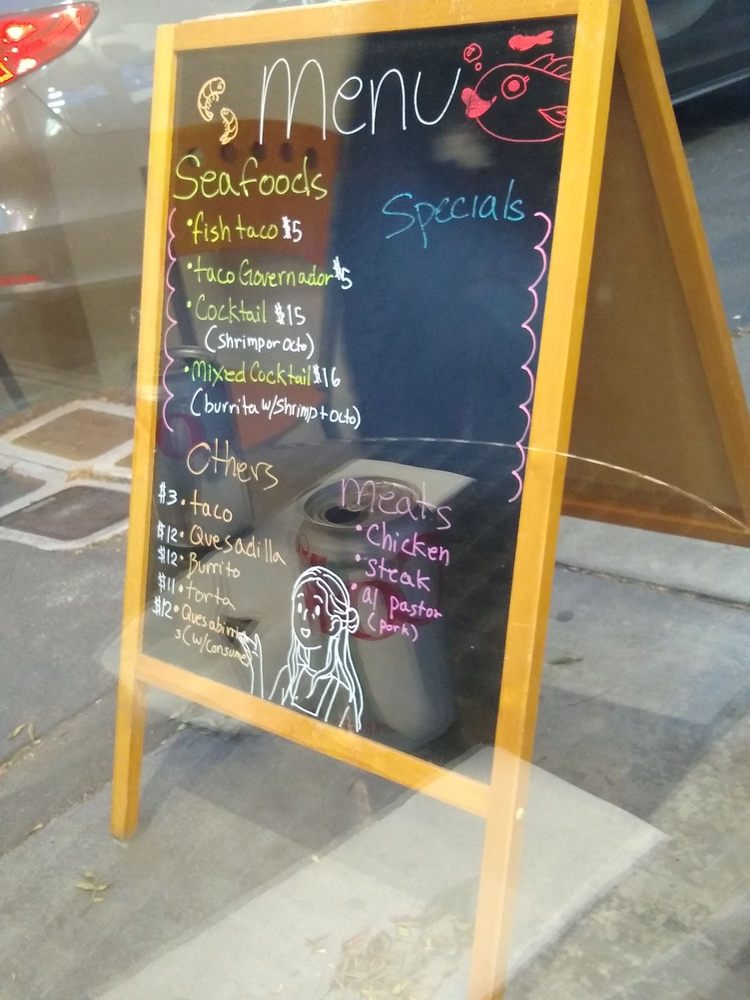 Menu
Seafoods
• fish taco $5
• taco Governador $5
• Cocktail $15
(shrimp or octo)
• Mixed Cocktail $16
(burrita w/shrimp + octo)
Specials
Others
$3 • taco
$12 • Quesadilla
$12 • Burrito
$11 • torta
$12 • Quesabirria
3 (w/consume)
Meats
• Chicken
• steak
• al pastor
(pork)